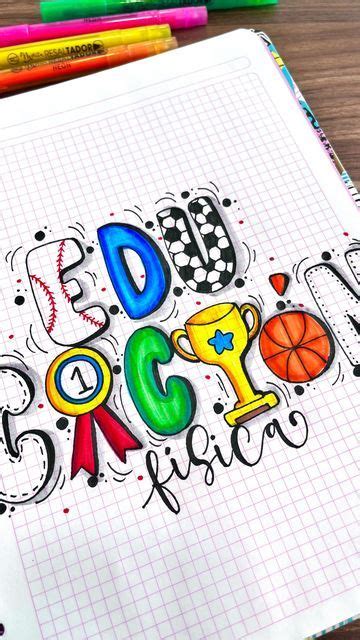 RESALTADOR
NEON
EDU
CACIÓN
1
física